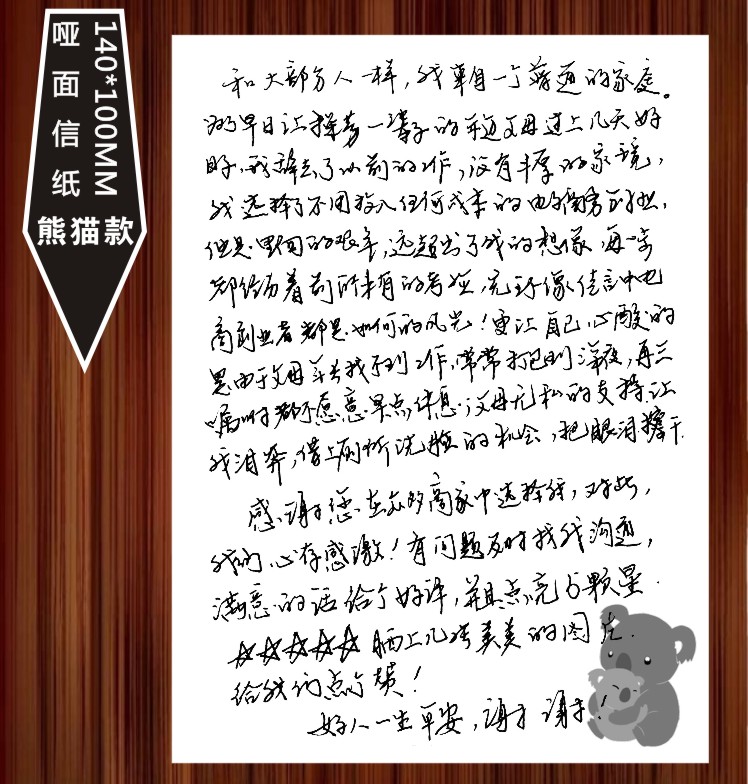 140*100MM
哑面信纸
熊猫款
和大部分人一样，我来自一个普通的家庭。
为早日让操劳一辈子的年迈父母过上几天好
日子，我辞去了以前的工作，没有丰厚的家境，
我选择了不用投入任何成本的电子商务创业，
但是，里面的艰辛，远超出了我的想像，每一步
都经历着前所未有的考验，无法像传言中电
商创业者都是如何的风光！更让自己心酸的
是由于父母年长找不到工作，常常打包到深夜，再三
嘱咐都不愿意早点休息，父母无私的支持让
我泪奔，借上厕所洗脸的机会，把眼泪擦干.
感谢您在众多商家中选择我，对此，
我们心存感激！有问题及时找我沟通，
满意的话给个好评，并且点亮5颗星.
☆☆☆☆☆ 晒上几张美美的图片.
给我们点个赞！
好人一生平安，谢谢 谢谢！